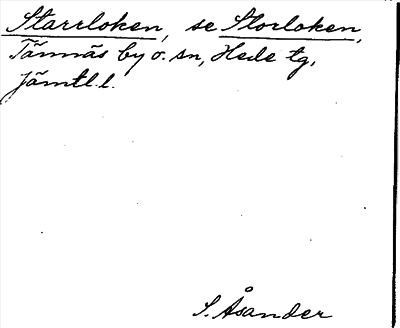 Starrloken, se Storloken,
Tännäs by o. sn, Hede tg,
Jämtl. l.
S. Åsander